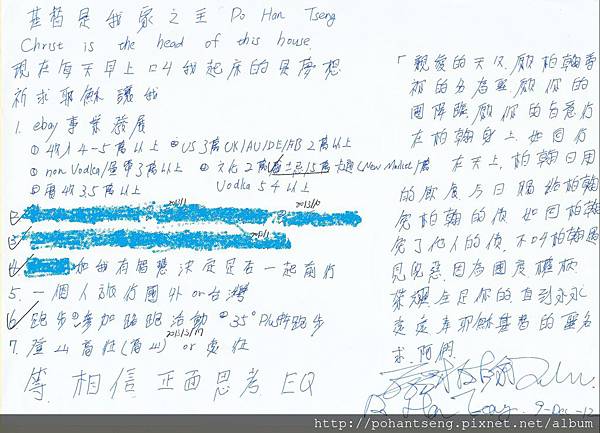 基督是我家之主 Po Han Tseng
Christ is the head of this house.
現在每天早上叫我起床的是夢想
祈求耶穌讓我
1. ebay事業發展
①收入4-5萬以上 ②US 3萬 UK/AU/DE/HB 2萬以上
③non Vodka/ 3萬以上 ④文化2萬 15萬 (New Market) 萬
⑤ 收3.5萬以上 Vodka 54以上
2
2013/10
3
4 如我有智慧決定是否一起前行
5. 一個人旅行國外or台灣
6 跑步①參加路跑活動 ②35° Plus 跑步
2013/3/17
7. 登山高雄(高山) or
等 相信 正面思考 EQ
「親愛的天父,願柏翰尊
祢的名為聖,願你的
國降臨,願你的旨意行
在柏翰身上,如同行
在天上,柏翰日用
的飲食今日賜給柏翰
免柏翰的債,如同柏翰
免了他人的債,不叫柏翰遇
見兇惡,因為國度權柄
榮耀全是你的,直到永永
遠遠奉耶穌基督的聖名
求,阿們
Po Han Tseng 9-Dec-12
http://pohantseng.pixnet.net/album